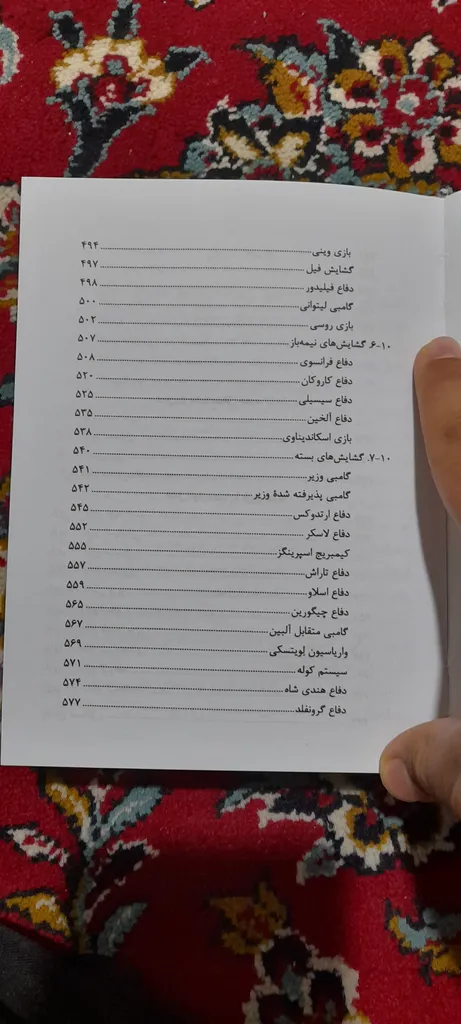 بازی وینی ۴۹۴
گشایش فیل ۴۹۷
دفاع فیلیدور ۴۹۸
گامبی لیتوانی ۵۰۰
بازی روسی ۵۰۲
۱۰-۶. گشایش‌های نیمه‌باز ۵۰۷
دفاع فرانسوی ۵۰۸
دفاع کاروکان ۵۲۰
دفاع سیسیلی ۵۲۵
دفاع آلخین ۵۳۵
بازی اسکاندیناوی ۵۳۸
۱۰-۷. گشایش‌های بسته ۵۴۰
گامبی وزیر ۵۴۱
گامبی پذیرفته شدهٔ وزیر ۵۴۲
دفاع ارتدوکس ۵۴۵
دفاع لاسکر ۵۵۲
کیمبریج اسپرینگز ۵۵۵
دفاع تاراش ۵۵۷
دفاع اسلاو ۵۵۹
دفاع چیگورین ۵۶۵
گامبی متقابل آلبین ۵۶۷
واریاسیون لِویتسکی ۵۶۹
سیستم کوله ۵۷۱
دفاع هندی شاه ۵۷۴
دفاع گرونفلد ۵۷۷